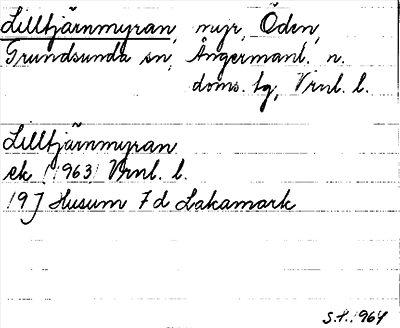 Lilltjärnmyran, myr, Öden,
Grundsunda sn, Ångermanl. n.
doms. tg, Vrnl. l.
Lilltjärnmyran
ek (1963) Vrnl. l.
19J Husum 7d Lakamark
S.P. 1964